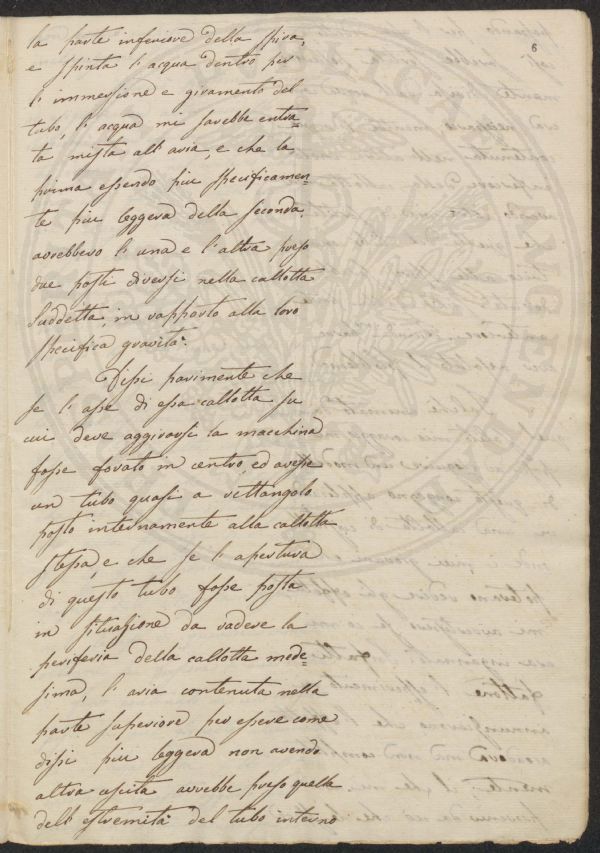 6
la parte inferiore della spira,
e spinta l'acqua dentro per
l'immersione e giramento del
tubo, l'acqua mi sarebbe entra=
ta mista all'aria, e che la
prima essendo piu specificamen=
te piu leggera della seconda,
avrebbero l'una e l'altra preso
due posti diversi nella callotta
suddetta, in rapporto alla loro
specifica gravità.
Dissi parimente che
se l'asse di essa callotta su
cui deve aggirarsi la macchina
fosse forato in centro, ed avesse
un tubo quasi a rettangolo
posto internamente alla callotta
stessa, e che se l'apertura
di questo tubo fosse posta
in situazione da radere la
periferia della callotta mede=
sima, l'aria contenuta nella
parte superiore, per essere come
dissi piu leggera non avendo
altra uscita avrebbe preso quella
dell'estremità del tubo interno